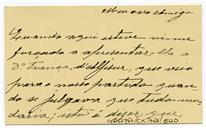 Meu caro amigo
Quando aqui esteve vi-me
forçado a apresentar-lhe o
Dr. França, d'Alfihar, que veio
para o nosso partido quan-
do se julgava que tudo mu-
daria; isto é dizer que